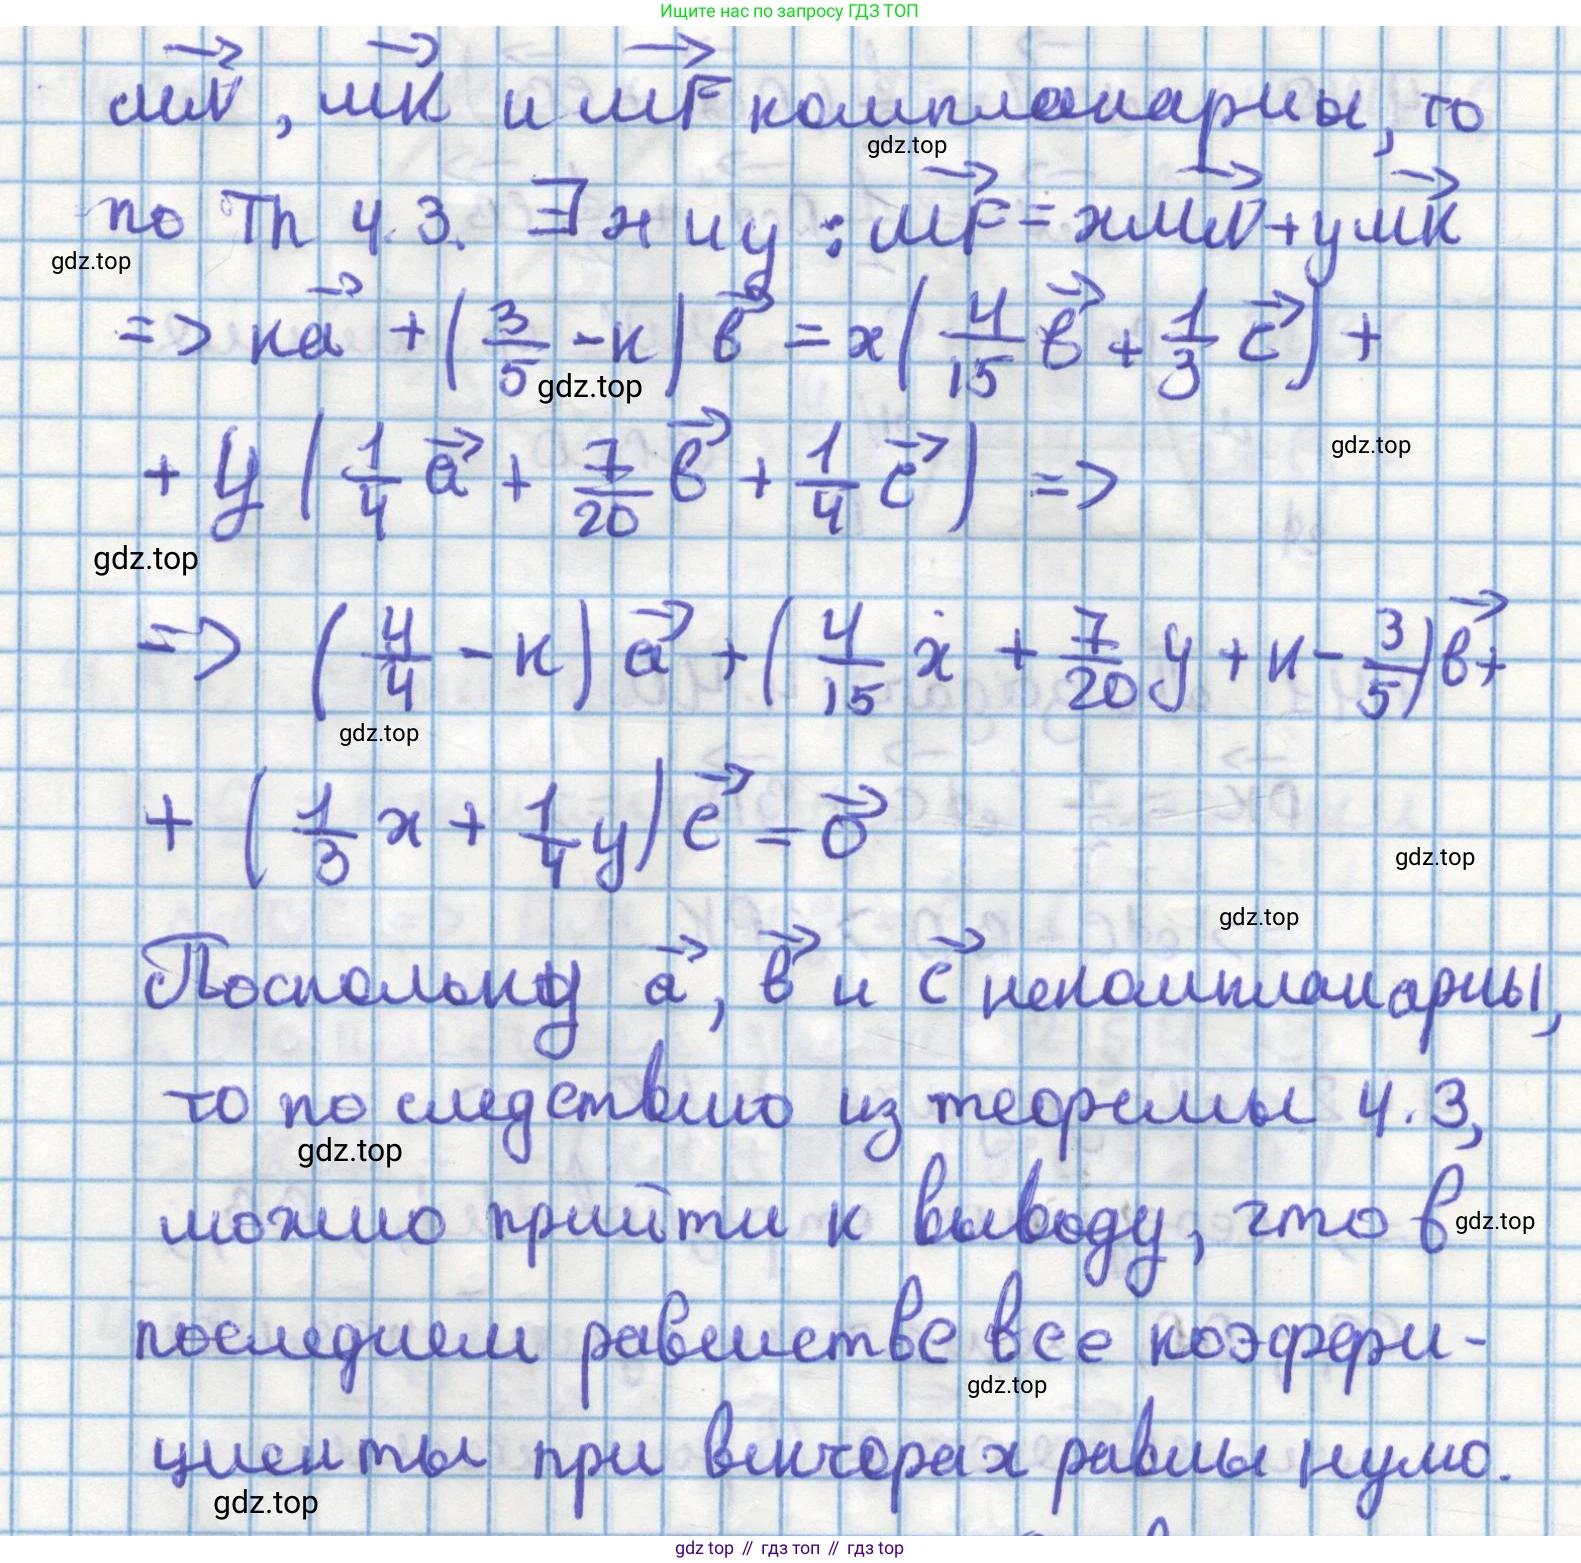 Ищите нас по запросу ГДЗ ТОП
MN, MK и MF компланарны, то
gdz.top
по Th 4.3. ∃ x и y : MF = xMN + yMK
gdz.top
=> ka + (3/5 - k) b = x(4/15 b + 1/3 c) +
gdz.top
+ y (1/4 a + 7/20 b + 1/4 c) =>
gdz.top
gdz.top
=> (4/4 - k) a + (4/15 x + 7/20 y + k - 3/5) b +
gdz.top
+ (1/3 x + 1/4 y) c = 0
gdz.top
gdz.top
Поскольку a, b и c некомпланарны,
то по следствию из теоремы 4.3,
gdz.top
можно прийти к выводу, что в
gdz.top
последнем равенстве все коэффи-
gdz.top
циенты при векторах равны нулю.
gdz.top
gdz top // гдз топ // гдз top